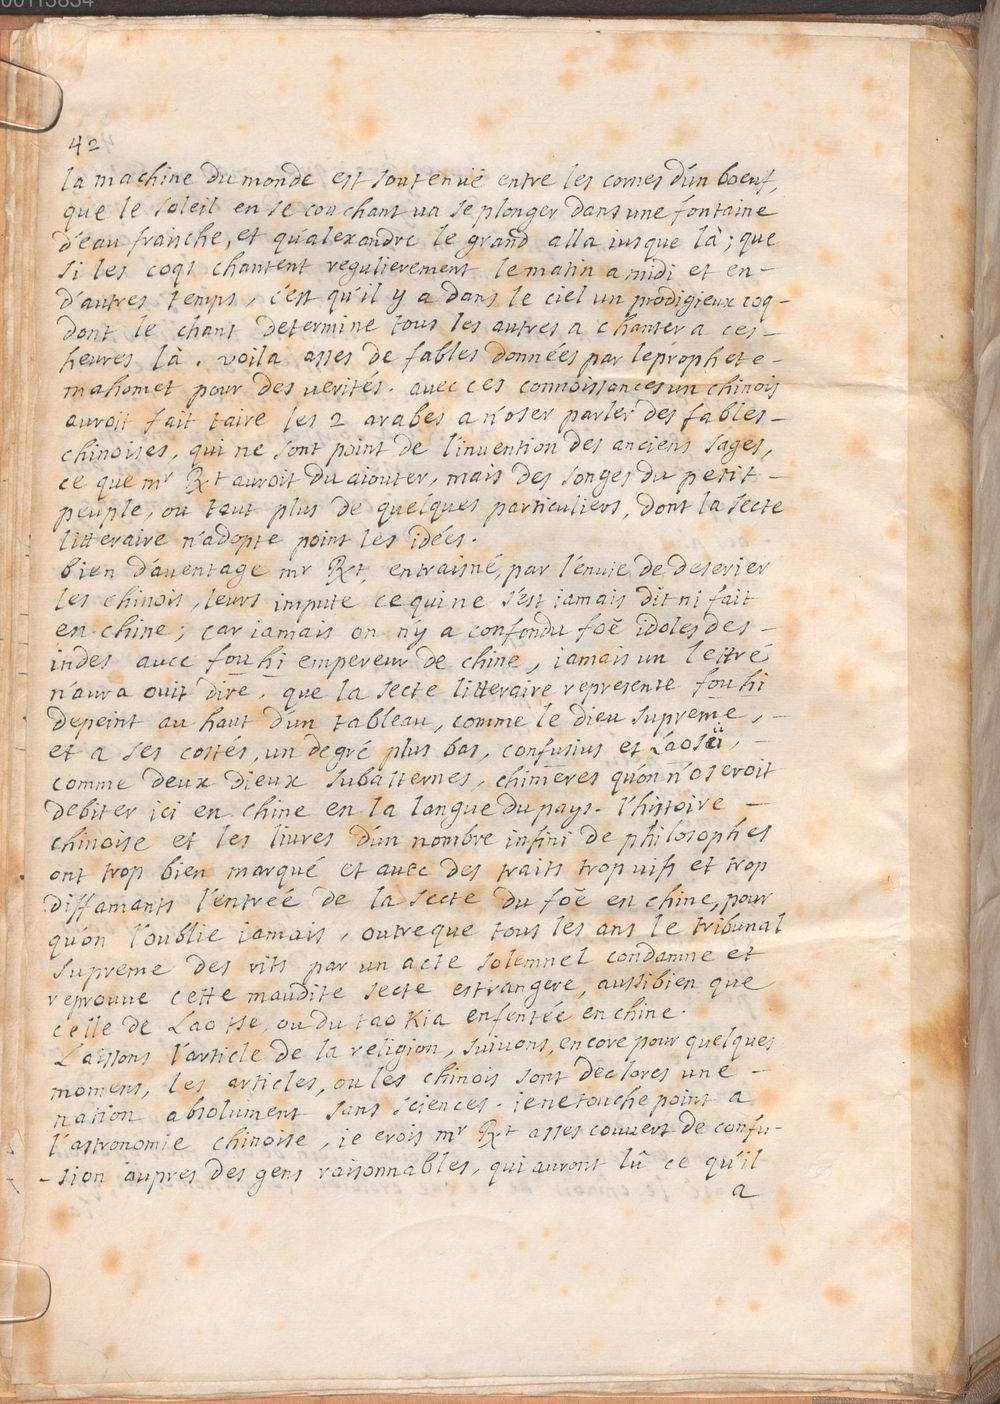 00113834
42
la machine du monde est soutenuë entre les cornes d'un boeuf,
que le soleil en se couchant va se plonger dans une fontaine
d'eau franche, et qu'alexandre le grand alla iusque là; que
si les coqs chantent regulierement le matin a midi et en-
d'autres temps, c'est qu'il y a dans le ciel un prodigieux coq-
dont le chant determine tous les autres a chanter a ces-
heures là. voila asses de fables données par le prophete-
mahomet pour des verités. avec ces connoissances un chinois
auroit fait taire les 2 arabes a n'oser parler des fables-
chinoises, qui ne sont point de l'invention des anciens sages,
ce que mr Rt auroit du aiouter, mais des songes du petit-
peuple, ou tout plus de quelques particuliers, dont la secte
litteraire n'adopte point les idées.
bien d'auentage mr Rt, entraisné, par l'enuie de decrier
les chinois, leurs impute ce qui ne s'est iamais dit ni fait
en chine; car iamais on n'y a confondu foë idoles des-
indes auec fou hi empereur de chine, iamais un lettré
n'aura ouit dire, que la secte litteraire represente fou hi
depeint au haut d'un tableau, comme le dieu supreme,-
et a ses costés, un degré plus bas, confusius et Laosü,-
comme deux dieux subalternes, chimeres qu'on n'oseroit
debiter ici en chine en la langue du pays. l'histoire-
chinoise et les liures d'un nombre infini de philosophes
ont trop bien marqué et auec des traits trop uifs et trop
diffamants l'entrée de la secte du foë en chine, pour
qu'on l'oublie iamais, outreque tous les ans le tribunal
supreme des rits par un acte solemnel condamne et
reprouue cette maudite secte estrangere, aussibien que
celle de Lao tse, ou du tao Kia enfentée en chine.
Laissons l'article de la religion, suiuons, encore pour quelques
momens, les articles, ou les chinois sont declarés une-
nation absolument sans sciences. ie ne touche point a
l'astronomie chinoise, ie crois mr Rt asses couuert de confu-
-sion aupres des gens raisonnables, qui auront lû ce qu'il
a